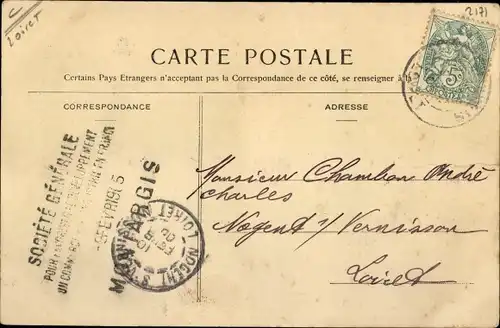 Loiret
2171
5c
CARTE POSTALE
Certains Pays Etrangers n'acceptant pas la Correspondance de ce côté, se renseigner à la
CORRESPONDANCE
ADRESSE
SOCIÉTÉ GÉNÉRALE
POUR FAVORISER LE DÉVELOPPEMENT
DU COMMERCE EN FRANCE
FEVR 1905
MONTARGIS
NOGENT S
LOIRET
Monsieur Chambon André
Charles
Nogent s/ Vernisson
Loiret